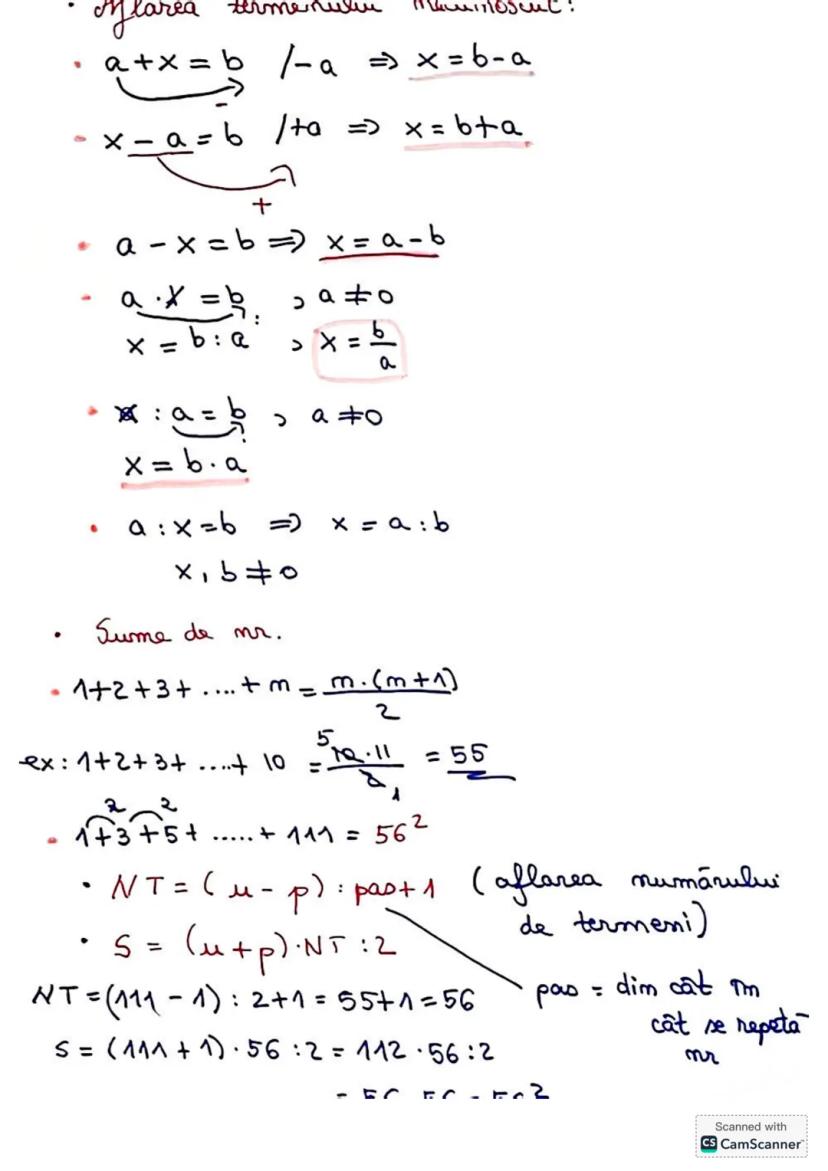 · Aflarea termenului necunoscut:
· a + x = b /-a ⇒ x = b - a
-
- x - a = b /+a ⇒ x = b + a
+
· a - x = b ⇒ x = a - b
- a · x = b , a ≠ 0
:
x = b : a , x = b/a
· x : a = b , a ≠ 0
x = b · a
· a : x = b ⇒ x = a : b
x, b ≠ 0
· Sume de nr.
· 1+2+3+ ....+ n = n·(n+1)/2
ex: 1+2+3+ ....+ 10 = 10·11/2 = 55
5
1
2 2
- 1+3+5+ .....+ 111 = 56²
· NT = (u - p) : pas + 1 (aflarea numărului
de termeni)
· S = (u + p) · NT : 2
NT = (111 - 1) : 2 + 1 = 55 + 1 = 56
pas = din cât în
cât se repetă
nr
S = (111 + 1) · 56 : 2 = 112 · 56 : 2
Scanned with
CS CamScanner